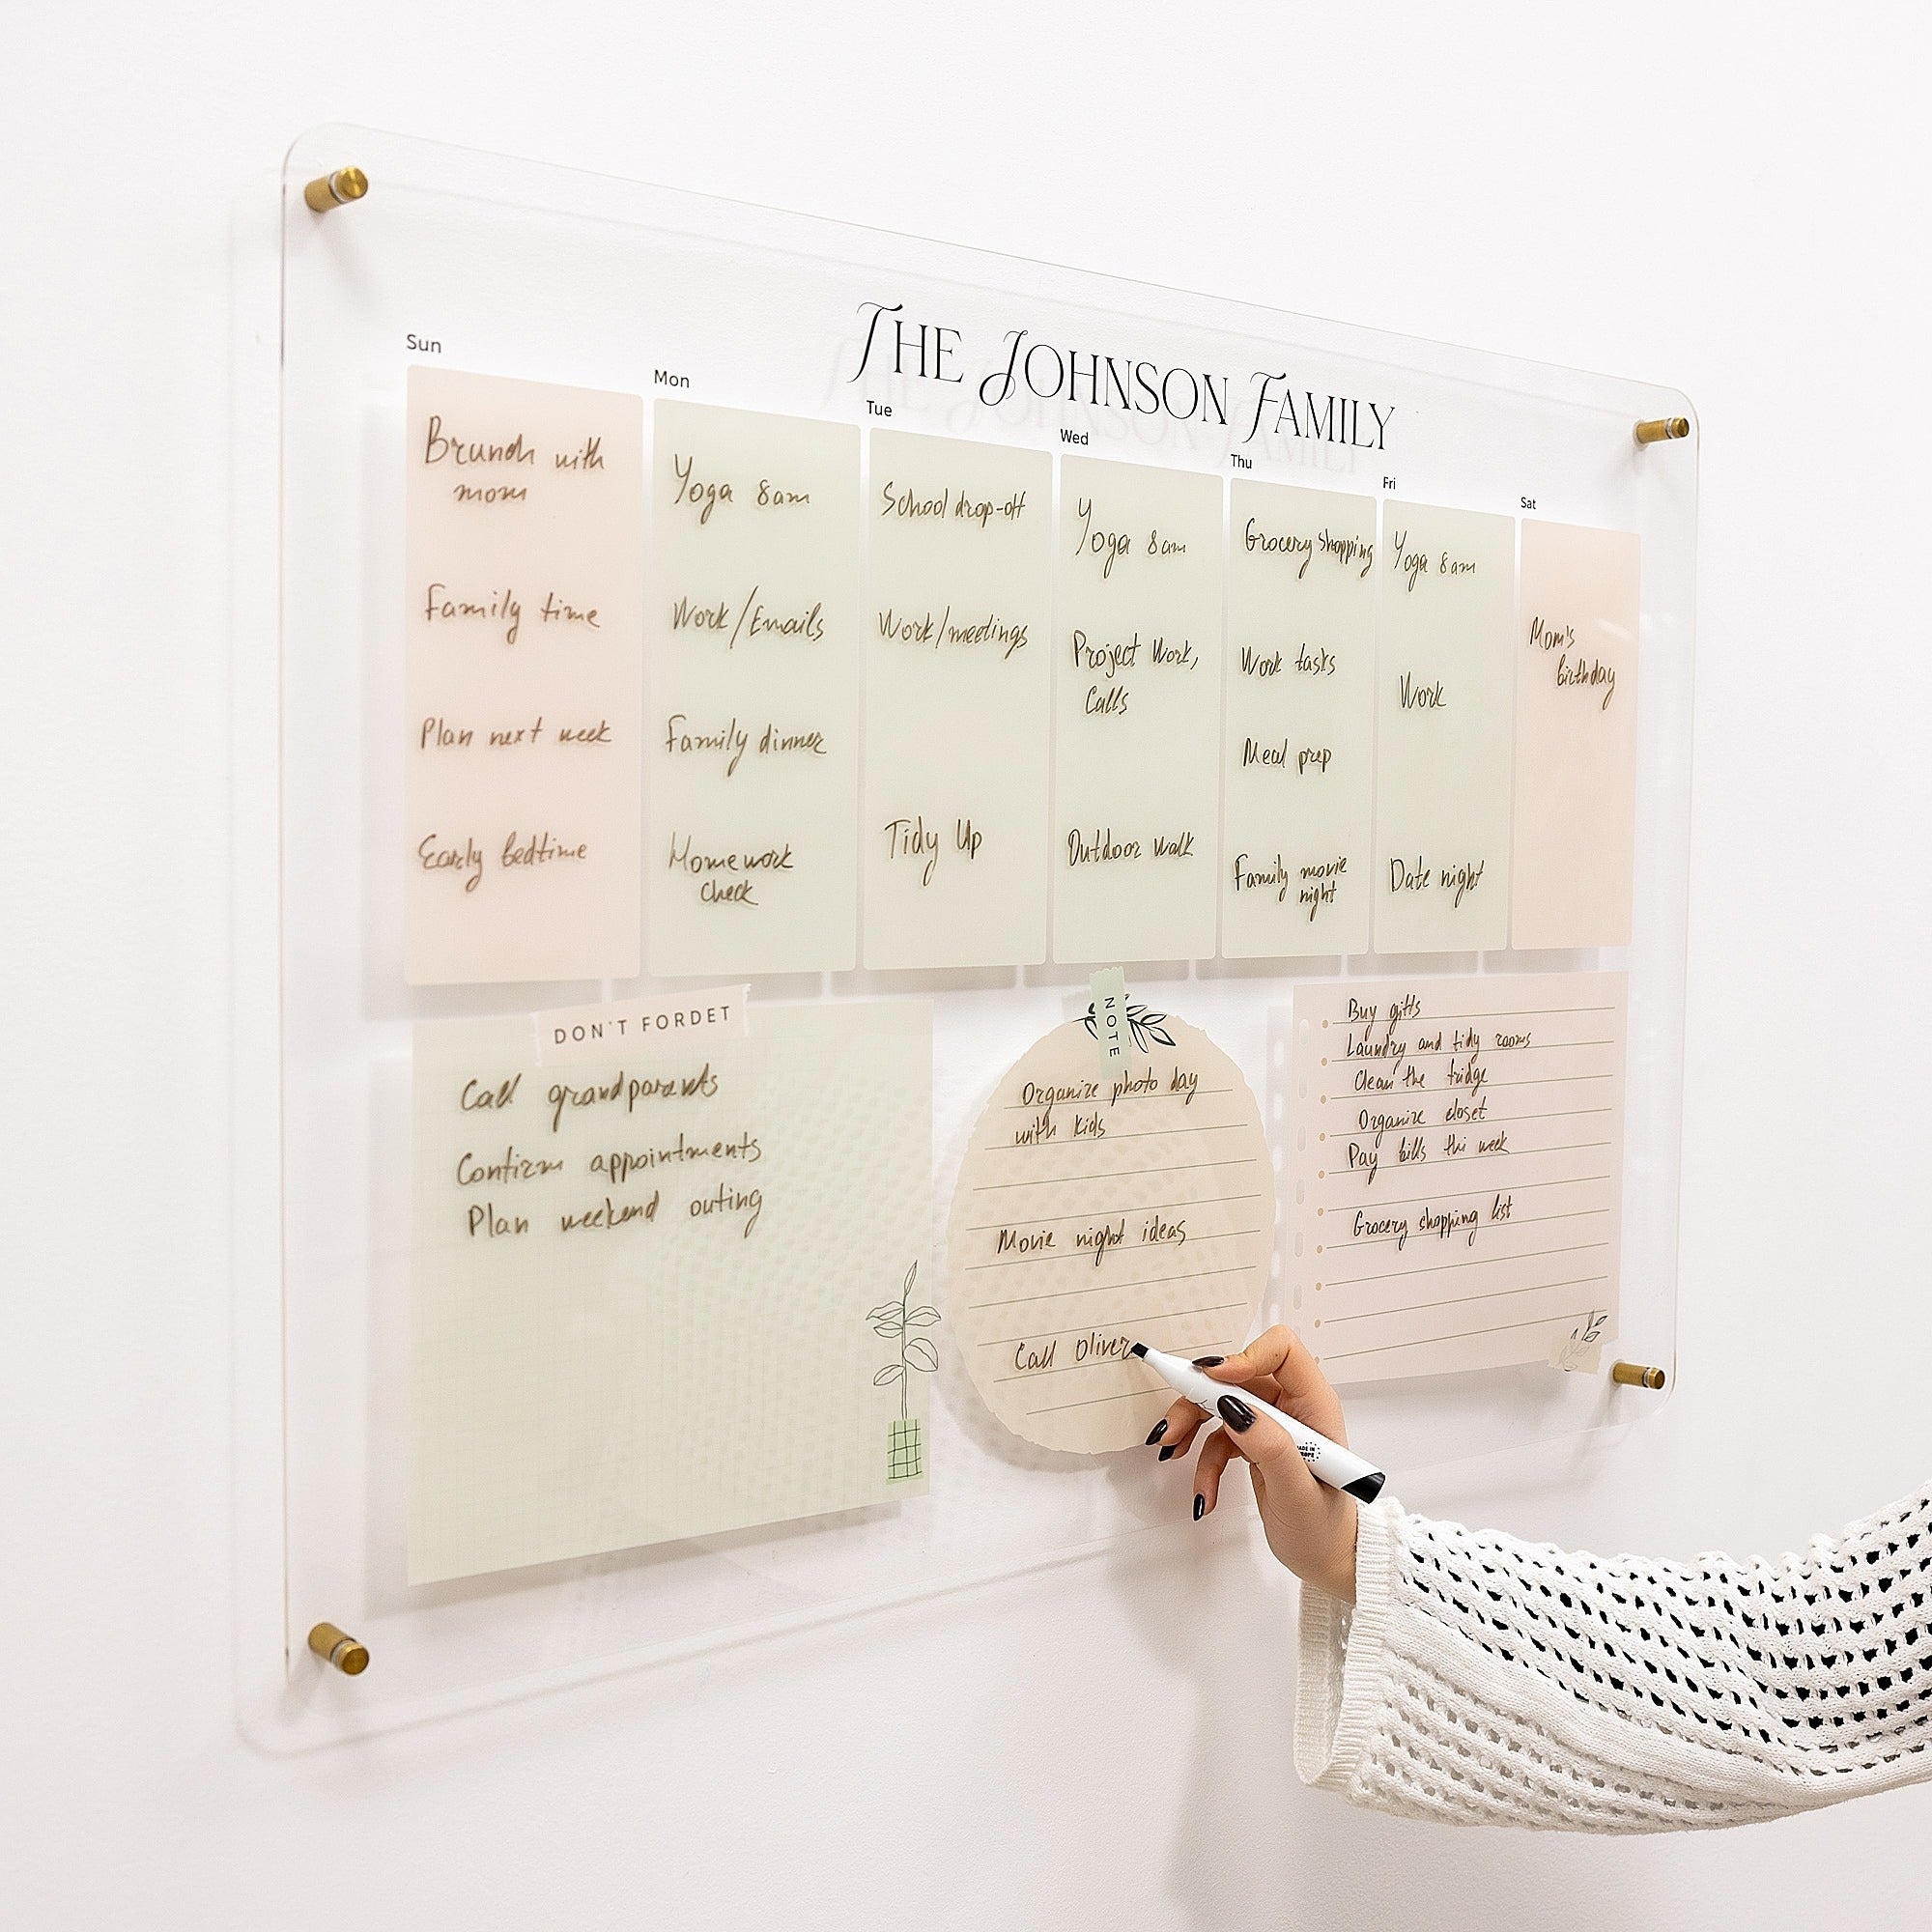 THE JOHNSON FAMILY
Sun
Brunch with
mom
Family time
Plan next week
Early bedtime
Mon
Yoga 8am
Work/Emails
Family dinner
Homework
check
Tue
School drop-off
Work/meetings
Tidy Up
Wed
Yoga 8am
Project Work,
Calls
Outdoor walk
Thu
Grocery shopping
Work tasks
Meal prep
Family movie
night
Fri
Yoga 8am
Work
Date night
Sat
Mom's
birthday
DON'T FORDET
Call grandparents
Confirm appointments
Plan weekend outing
NOTE
Organize photo day
with kids
Movie night ideas
Call Oliver
Buy gifts
Laundry and tidy rooms
Clean the fridge
Organize closet
Pay bills this week
Grocery shopping list